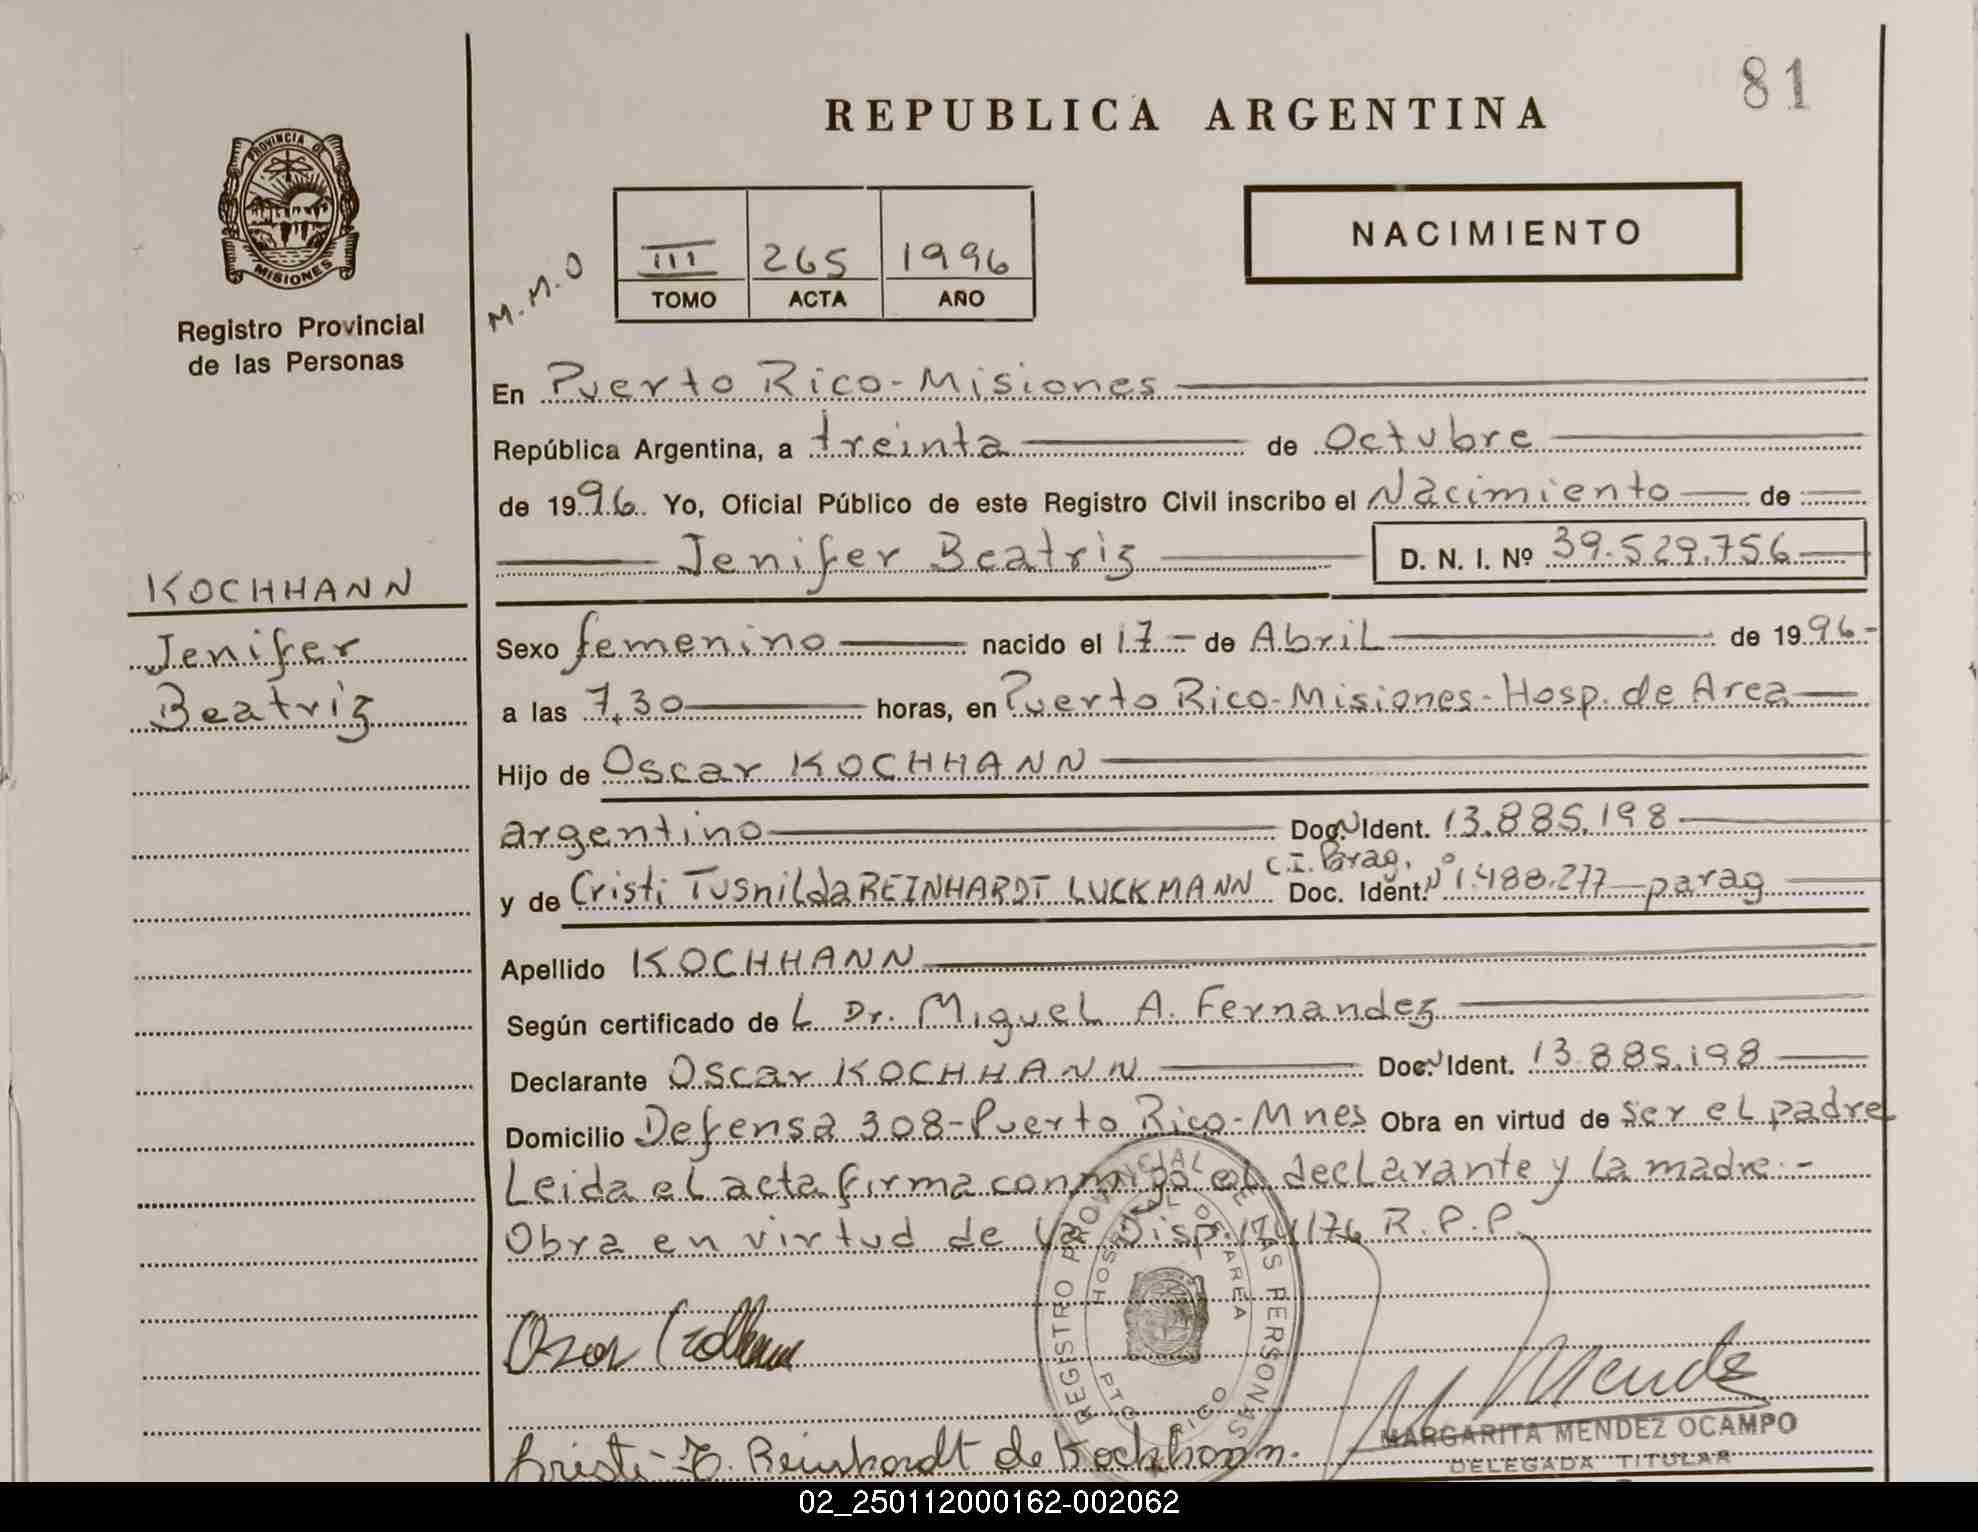 81
REPUBLICA ARGENTINA
PROVINCIA DE
MISIONES
Registro Provincial
de las Personas
M.M.O
III 265 1996
TOMO ACTA AÑO
NACIMIENTO
En Puerto Rico - Misiones
República Argentina, a treinta de Octubre
de 1996. Yo, Oficial Público de este Registro Civil inscribo el Nacimiento de
Jenifer Beatriz D. N. I. Nº 39.529.756
KOCHHANN
Jenifer
Beatriz
Sexo femenino nacido el 17 - de Abril de 1996-
a las 7,30 horas, en Puerto Rico - Misiones - Hosp. de Area
Hijo de Oscar KOCHHANN
argentino Doc. N Ident. 13.885.198
C.I. Parag.
y de Cristi Tusnilda REINHARDT LUCKMANN Doc. Ident. Nº 1.488.277 parag
Apellido KOCHHANN
Según certificado de L Dr. Miguel A. Fernandez
Declarante Oscar KOCHHANN Doc. N Ident. 13.885.198
Domicilio Defensa 308 - Puerto Rico - Mnes Obra en virtud de ser el padre
Leida el acta firma conmigo el declarante y la madre. -
Obra en virtud de la Disp. 174/76 R.P.P.
REGISTRO PROVINCIAL DE LAS PERSONAS
HOSPITAL DE AREA
PTO RICO
Oscar Kochhann
M Mendez
MARGARITA MENDEZ OCAMPO
DELEGADA TITULAR
Cristi T. Reinhardt de Kochhann.
02_250112000162-002062